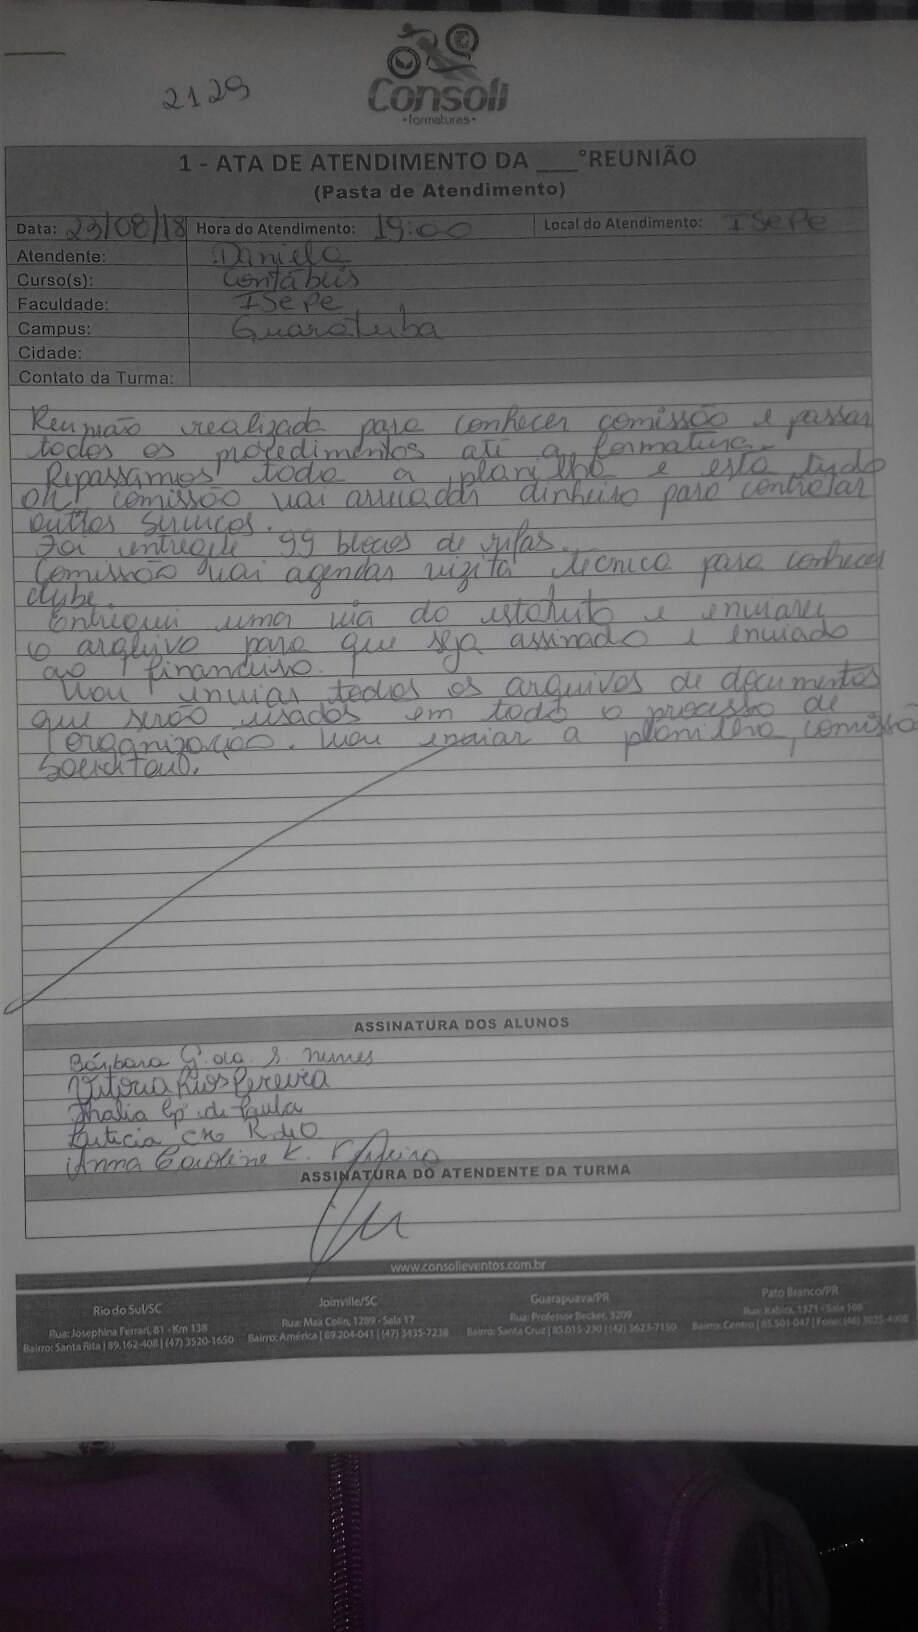 2129
Consoli
•formaturas•
1 - ATA DE ATENDIMENTO DA ___°REUNIÃO
(Pasta de Atendimento)
Data: 23/08/18 Hora do Atendimento: 19:00 Local do Atendimento: ISePe
Atendente: Daniela
Curso(s): Contábeis
Faculdade: ISePe
Campus: Guaratuba
Cidade:
Contato da Turma:
Reunião realizada para conhecer comissão e passar
todos os procedimentos até a formatura.
Repassamos toda a planilha e esta tudo
ok, comissão vai arrecadar dinheiro para contratar
outros serviços.
Foi entregue 99 blocos de rifas.
Comissão vai agendar vizita técnica para conhecer
clube.
Entreguei uma via do estatuto e enviarei
o arquivo para que seja assinado e enviado
ao financeiro.
Vou enviar todos os arquivos de documentos
que serão usados em todo o processo de
organização. Vou enviar a planilha, comissão
solicitou.
ASSINATURA DOS ALUNOS
Bárbara G. da S. Nunes
Vitória Rios Pereira
Thalia Ap. de Paula
Leticia
Anna Caroline K.
ASSINATURA DO ATENDENTE DA TURMA
www.consolieventos.com.br
Rio do Sul/SC
Rua: Josephina Ferrari, 81 - Km 138
Bairro: Santa Rita | 89.162-408 | (47) 3520-1650
Joinville/SC
Rua: Max Colin, 1289 - Sala 17
Bairro: América | 89.204-041 | (47) 3435-7238
Guarapuava/PR
Rua: Professor Becker, 3209
Bairro: Santa Cruz | 85.015-230 | (42) 3623-7150
Pato Branco/PR
Rua: Itabira, 1371 - Sala 108
Bairro: Centro | 85.501-047 | Fone: (46) 3025-4908